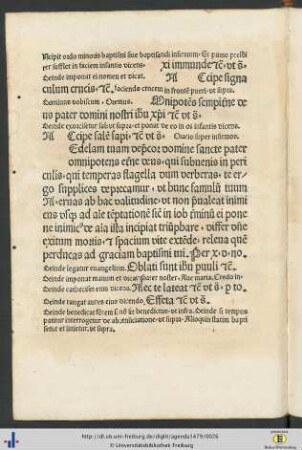 Incipit ordo minoris baptismi siue baptisandi infirmum. Et primo presbi
ter sufflet in faciem infantis dicens. Exi immunde τc̄ vt s̄.
Deinde imponat ei nomen et dicat. Accipe signa
culum crucis. τc̄. faciendo crucem in fronte pueri. vt supra.
Dominus vobiscum. Oremus. Omnipotēs sempitn̄e de
us pater domini nostri ihu xp̄i τc̄ vt s̄.
Deinde exorciset sal vt supra et ponat de eo in os infantis dicens.
Accipe sale sapī. τc̄ vt s̄. Oratio super infirmum.
Medelam tuam dep̄cor domine sancte pater
omnipotens etn̄e deus. qui subuenis in peri
culis. qui temperas flagella dum verberas. te er
go supplices deprecamur. vt hunc famulū tuum
N. eruas ab hac valitudine. vt non p̄ualeat inimi
cus vsq3 ad aīe tēptationē
ne inimicē de aīa ista incipiat triūphare. differ
exitum mortis. et spacium vite extēde. releua quē
perducas ad graciam baptismi tui. Per x. d. n.
Deinde legatur euangelium. Oblati sunt ihū puuli τc̄
Deinde imponat manum et dicat pater noster. Aue maria. Credo in
Deinde cathecizet eum dicens. Nec te lateat τc̄ vt s̄. p to
Deinde tangat aures eius dicendo. Effeta τc̄ vt s̄.
Deinde benedicat fontem si nō sit benedictus. vt infra. deinde si tempus
patitur interrogetur de abrenuciatione. vt supra. Alioquin statim bapti
setur et iniūctur. vt supra.
http://dl.ub.uni-freiburg.de/diglit/agenda1479/0026
© Universitätsbibliothek Freiburg